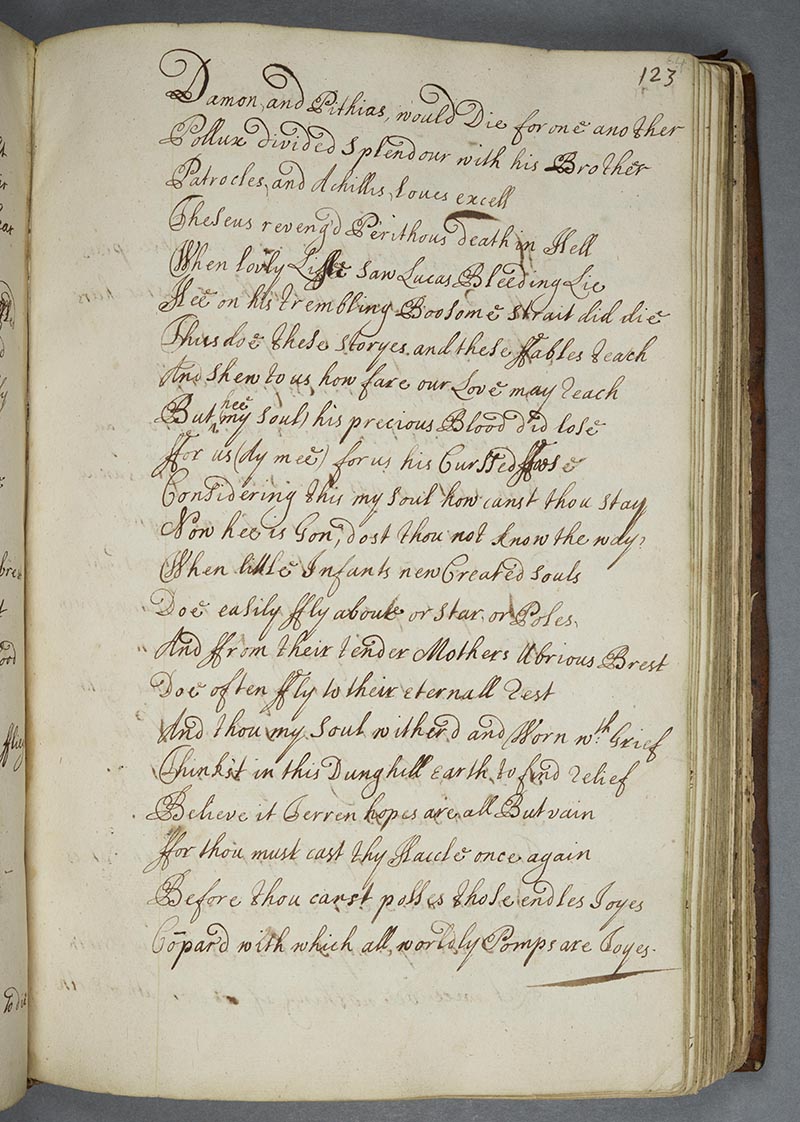 123
Damon, and Pithias, would Die for one another
Pollux divided Splendour with his Brother
Patrocles, and Achillis, loves excell
Theseus reveng'd Perithous death in Hell
When lovly Lisle saw Lucas Bleeding Lie
Hee on his trembling Boosome strait did die
Thus doe these storyes and these ffables teach
And shew to us how fare our Love may reach
But hee my soul) his precious Blood did lose
ffor us (Ay mee) for us his Curssed ffoose
Considering this my soul how canst thou stay
Now hee is Gon, dost thou not know the way?
When little Infants new Created souls
Doe easily ffly above or star, or Poles,
And ffrom their tender Mothers Ubrious Brest
Doe often ffly to their eternall rest
And thou my soul witherd and Worn wth. Grief
Thinkst in this Dunghill earth to find relief
Believe it Terren hopes are all But vain
ffor thou must cast thy Haccle once again
Before thou canst posses those endles Joyes
Cōpard with which all, worldly Pomps are Toyes.
to die